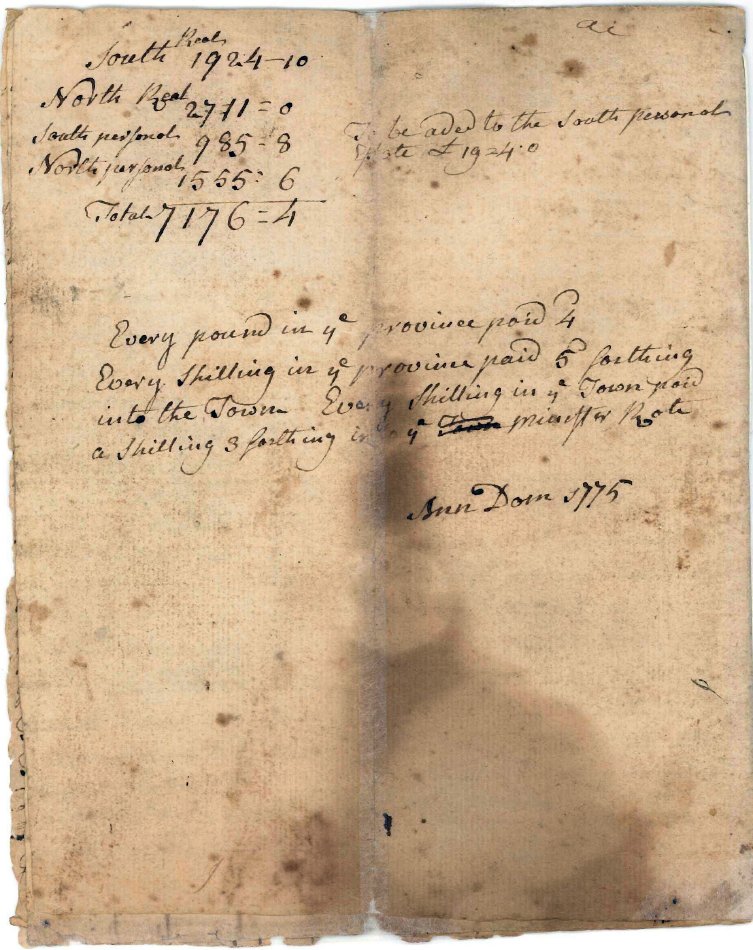 South Real 1924-10
North Real 2711=0
South personal 985=8
North personal 1555=6
Total 7176=4
To be aded to the South personal
Estate £ 1924:0
Every pound in ye province paid 4
Every shilling in ye province paid 5 farthing
into the Town Every shilling in ye Town paid
a shilling 3 farthing into ye Town minister Rate
Ann Dom 1775